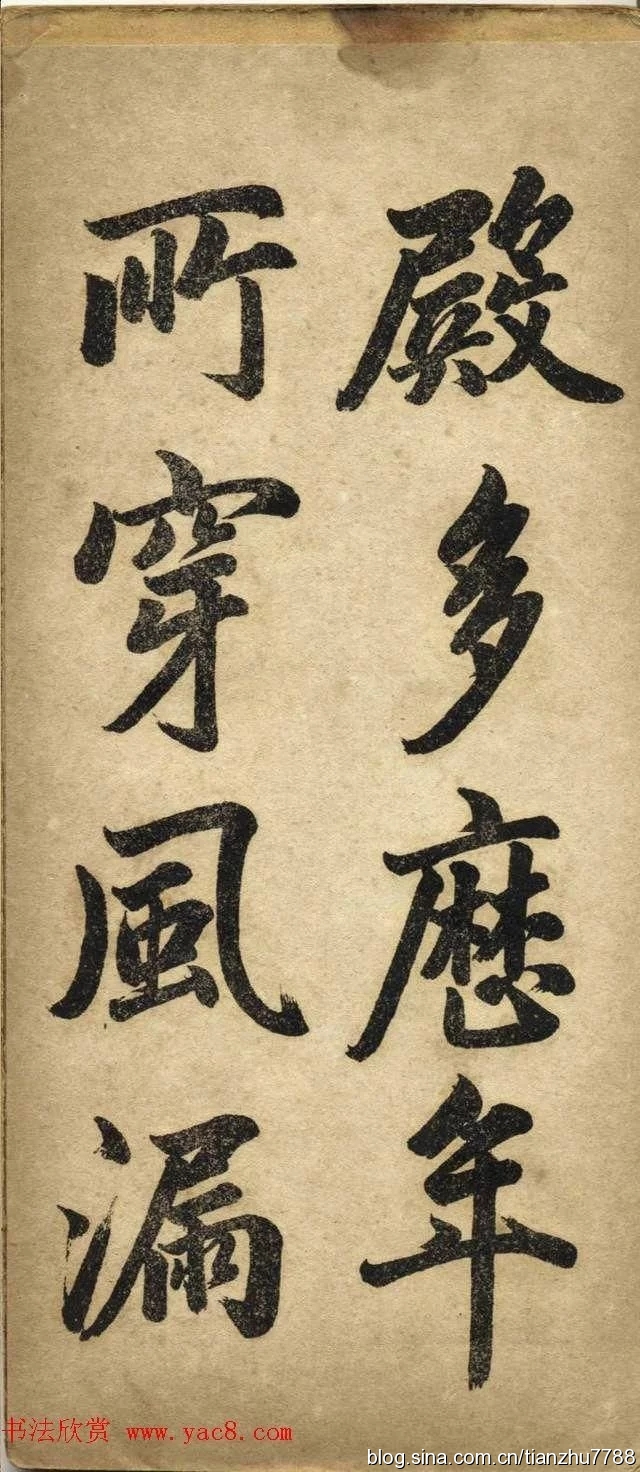 殿多歷年
所穿風漏
书法欣赏 www.yac8.com
blog.sina.com.cn/tianzhu7788